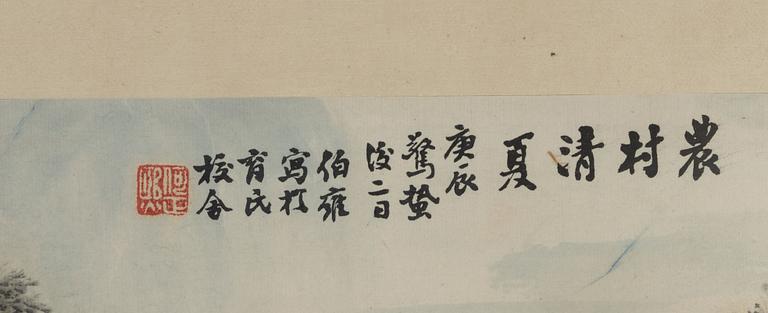 農村清夏
庚辰
驚蟄
後二日
伯雍
寫於
育民
校舍